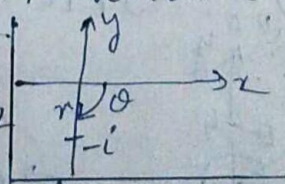 y
x
r θ
-i